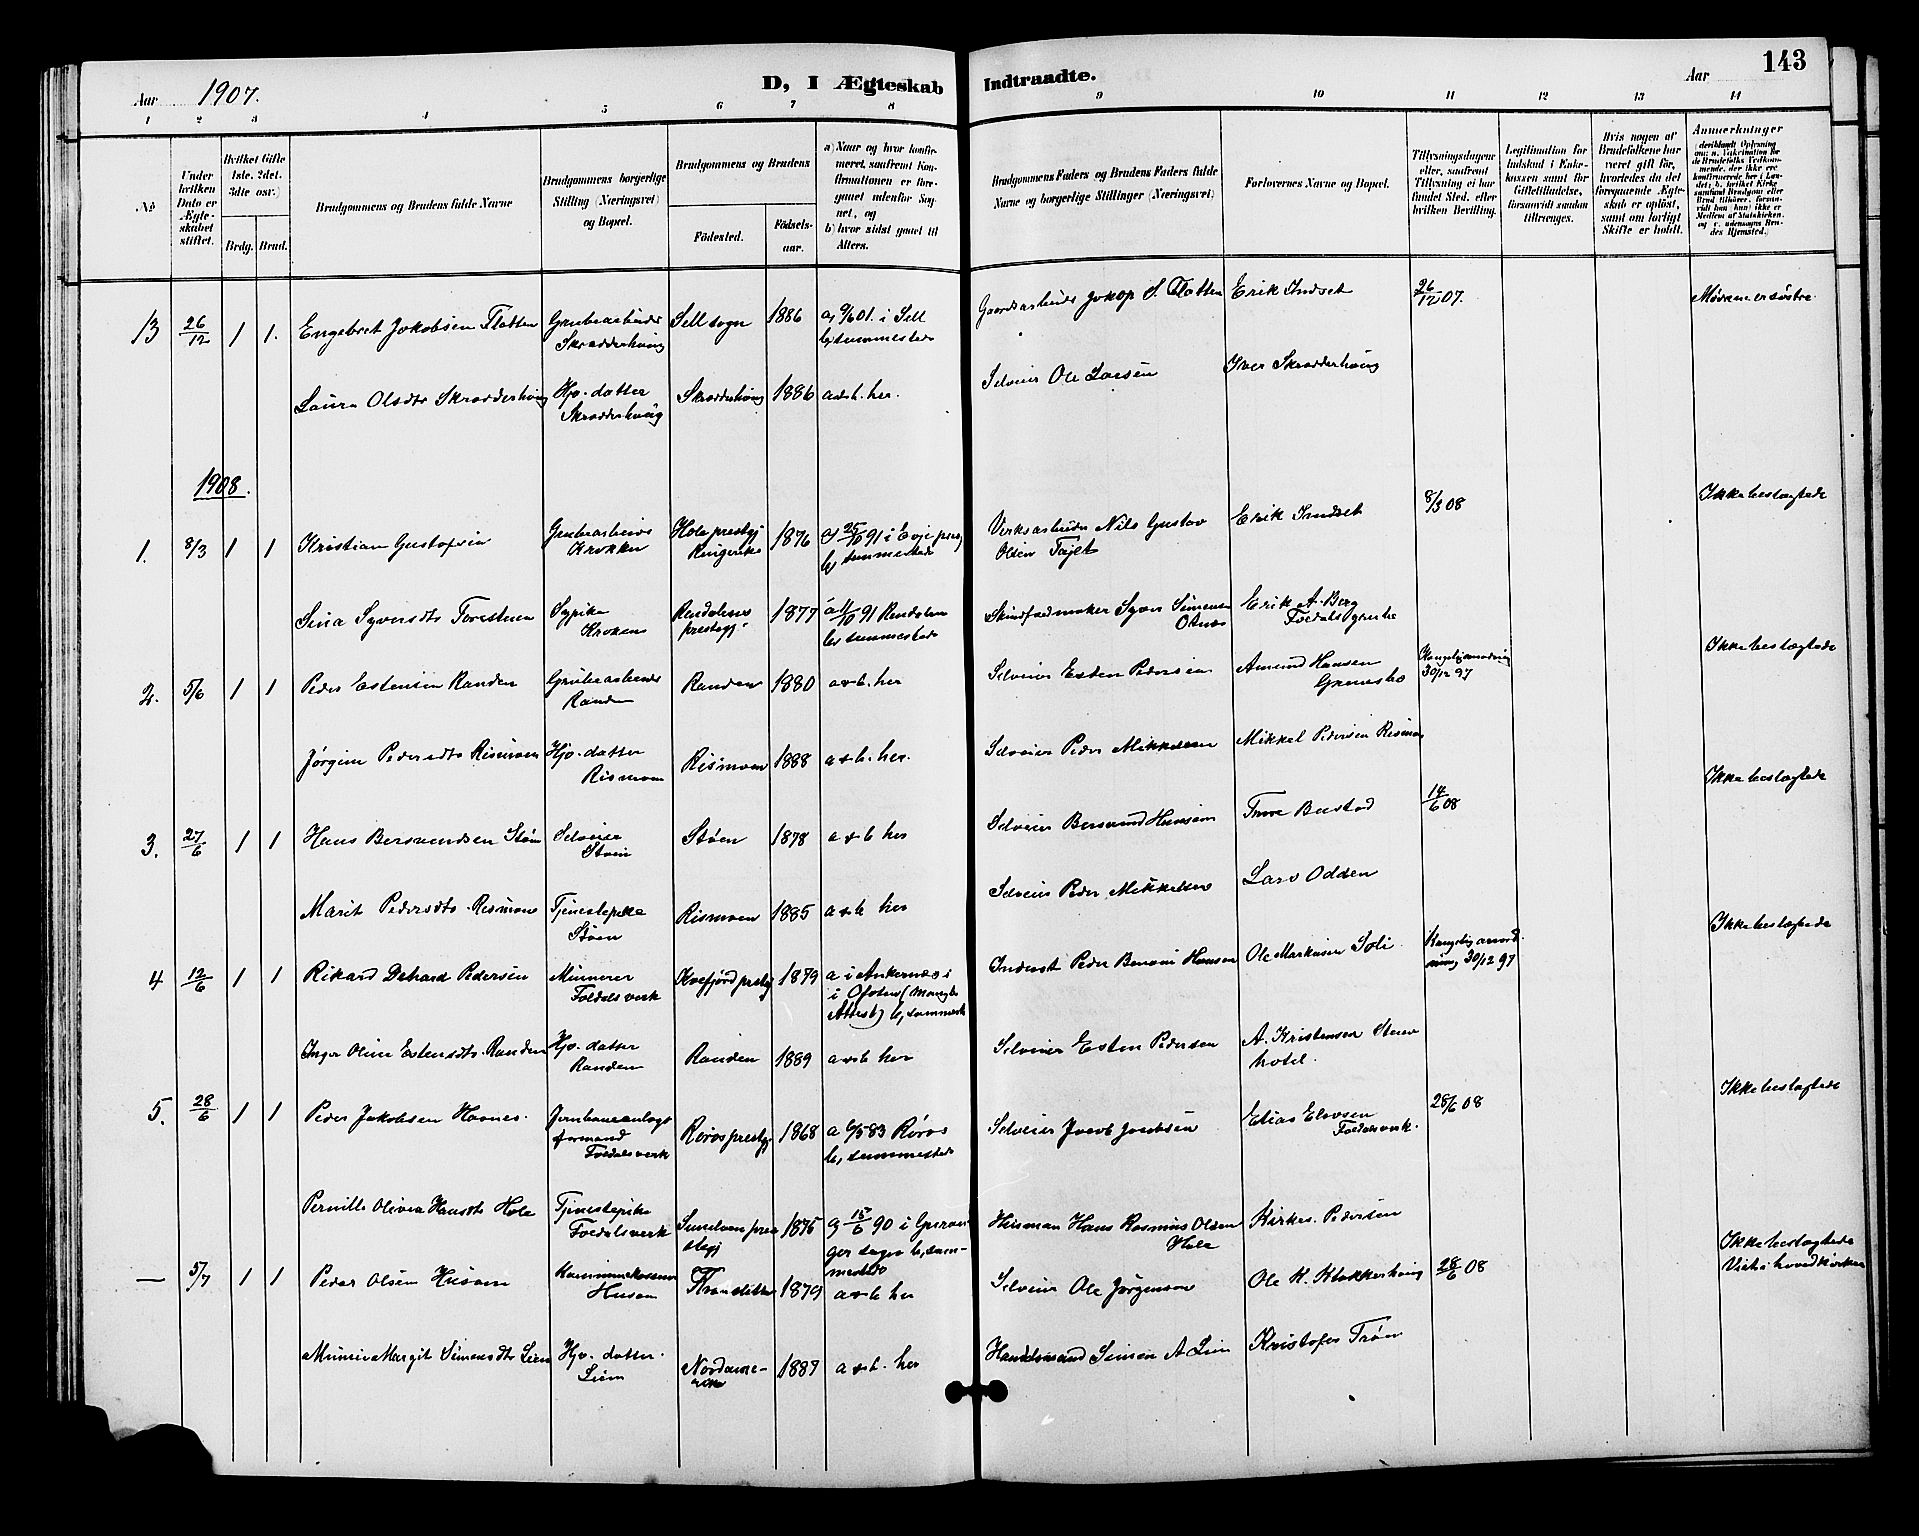 143
Aar 1907.
D, I Ægteskab Indtraadte.
Aar
1 2 3 4 5 6 7 8 9 10 11 12 13 14
№
Under hvilken Dato er Ægteskabet stiftet.
Hvilket Gifte 1ste, 2det, 3die osv.)
Brdg. Brud.
Brudgommens og Brudens fulde Navne
Brudgommens borgerlige Stilling (Næringsvei) og Bopæl.
Brudgommens og Brudens
Fødested.
Fødsels-aar.
a) Naar og hvor konfirmeret, saafremt Konfirmationen er foregaaet udenfor Sognet, og b) hvor sidst gaaet til Alters.
Brudgommens Faders og Brudens Faders fulde Navne og borgerlige Stillinger (Næringsvei)
Forlovernes Navne og Bopæl.
Tillysningsdagene eller, saafremt Tillysning ei har fundet Sted, efter hvilken Bevilling.
Legitimation for Indskud i Enkekassen samt for Giftetilladelse, forsaavidt saadan tiltrænges.
Hvis nogen af Brudefolkene har været gift før, hvorledes da det foregaaende Ægteskab er opløst, samt om fornget Skifte er holdt.
Anmærkninger
13 26/12 1 1. Engebret Jakobsen Flatten Grubearbeider Skrædderhaug Sell sogn 1886 a, 9/6 01. i Sell b, sammesteds Gaardsarbeider Jokop S. Flatten Erik Indset 26/12 07. Mødrene er søstre.
Laura Olsdtr Skrædderhaug Hjv. datter Skrædderhaug Skrædderhaug 1886 a & b. her. Selveier Ole Larsen Iver Skrædderhaug
1908.
1. 8/3 1 1 Kristian Gustafsen Grubearbeider Krokken Hole prestgj Ringerike 1876 25/10 91 i Evje b, sammesteds Verksarbeider Nils Gustav Olsen Erik Indset 8/3 08 Ikke beslægtede
Sina Syversdtr Sypike Kroken Rendalens prestegj. 1877 a 11/10 91 Rendalen b, sammesteds Skindfeldmaker Syver Simensen Otnæs Erik A. Berg Foldals grube
2. 5/6 1 1 Peder Estensen Randen Grubearbeider Randen Randen 1880 a & b. her Selveier Esten Pedersen Amund Hansen Grimsbo 30/12 97 Ikke beslægtede
Jørgine Pedersdtr Rismoen Hjv. datter Rismoen Rismoen 1888 a & b. her. Selveier Peder Mikkelsen Mikkel Pedersen Rismoen
3. 27/6 1 1 Hans Bersvendsen Støen Selveier Støen Støen 1878 a & b her Selveier Bersvend Hansen Bustad 14/6 08 Ikke beslægtede
Marit Pedersdtr. Rismoen Tjenestepike Støen Rismoen 1885 a & b her Selveier Peder Mikkelsen Lars Odden
4 12/6 1 1 Rikard Dehard Pedersen Minerer Foldals verk Kvefjord prestgj 1879 a i Ankernæs i Ofoten (mangler Attest) b, sammesteds Inderst Peder Benoni Hansen Ole Markusen Soli Kongelig anordning 30/12 97 Ikke beslægtede
Inger Oline Estensdtr. Randen Hjv. datter Randen Randen 1889 a & b her Selveier Esten Pedersen A. Kristensen hotel.
5. 28/6 1 1 Peder Jakobsen Havnes Jernbaneanlægs formand Foldalsverk Røros prestgj 1868 a 6/5 83 Røros b, sammesteds Selveier Jacob Jacobsen Elias Elvsen Foldalsverk. 28/6 08 Ikke beslægtede
Pernille Olivia Hansdtr Hole Tjenestepike Foldalsverk Sunelven prestegj 1875 a 15/6 90 i Geiranger sogn b, sammesteds Husmand Hans Rasmus Olsen Hole Kirkes. Pedersen
— 5/7 1 1 Peder Olsen Husom Husom 1879 a & b her Selveier Ole Jørgensen Ole K. Klokkerhaug 28/6 08 Ikke beslægtede Viet i hovedkirken
Margit Simensdtr Lien Hjv. datter. Lien Nordamerika 1887 a & b. her Handelsmand Simen A. Lien Kristofer Trøen